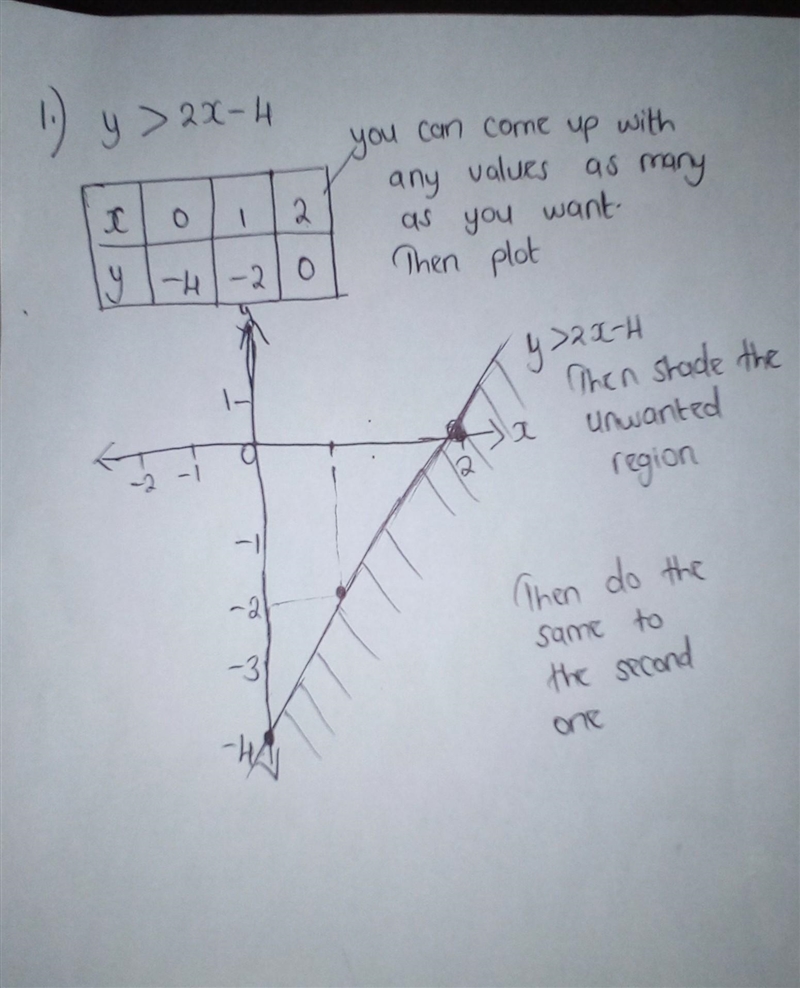 1.) y > 2x - 4
you can come up with
any values as many
as you want.
Then plot
x 0 1 2
y -4 -2 0
y
y > 2x - 4
Then shade the
unwanted
region
1
x
0
-2 -1 1 2
-1
-2
-3
-4
Then do the
same to
the second
one